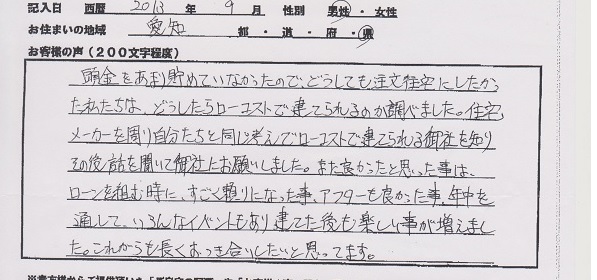 記入日 西暦 2013 年 9 月 性別 男性・女性
お住まいの地域 愛知 都・道・府・県
お客様の声(200文字程度)
頭金をあまり貯めていなかったので、どうしても注文住宅にしたかっ
た私たちは、どうしたらローコストで建てられるのか調べました。住宅
メーカーを周り自分たちと同じ考えでローコストで建てられる御社を知り
その後、話を聞いて御社にお願いしました。また良かったと思った事は、
ローンを組む時に、すごく頼りになった事、アフターも良かった事、年中を
通して、いろんなイベントもあり建てた後も楽しい事が増えまし
た。これからも長くおつき合いしたいと思ってます。